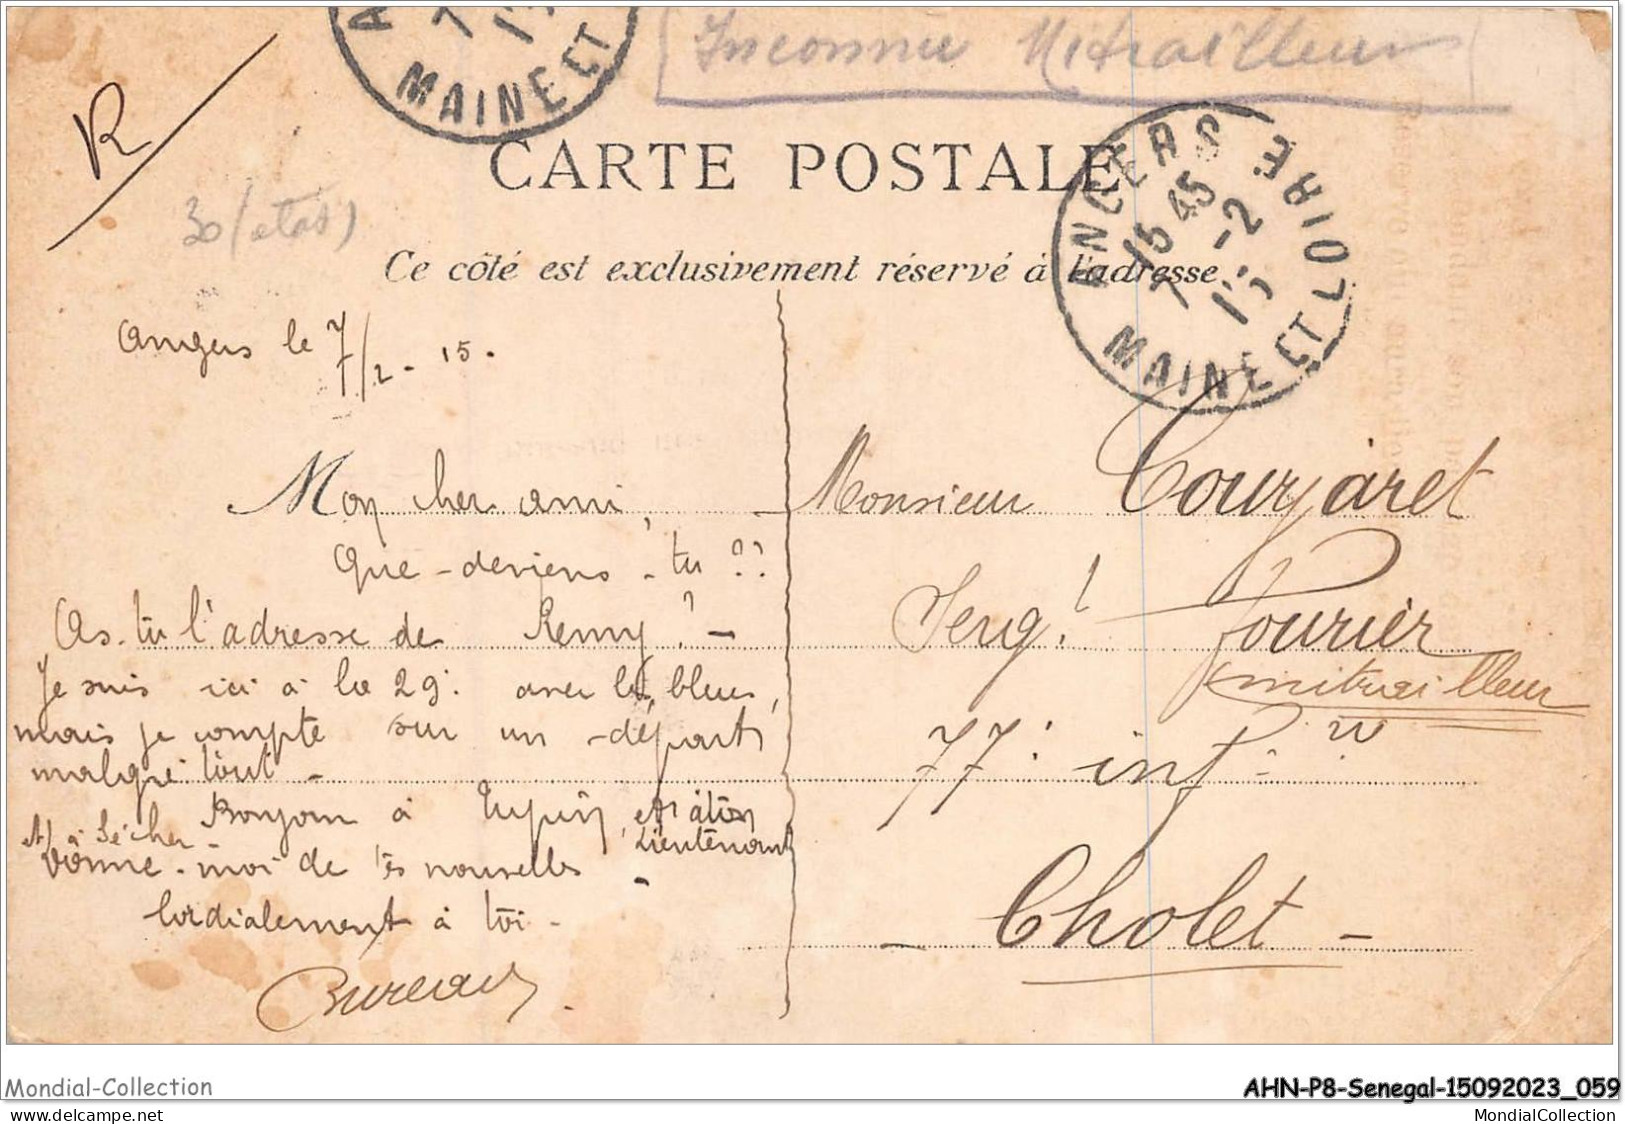 Inconnu Mitrailleurs
R
MAINE ET
CARTE POSTALE
ANGERS
15 45
7 -2
15
MAINE ET LOIRE
30
Ce côté est exclusivement réservé à l'adresse
Angers le 7/2 - 15.
Mon cher ami,
Que-deviens-tu ??
As-tu l'adresse de Remy? -
Je suis ici à la 29e avec les bleus,
mais je compte sur un départ
malgré tout -
Bonjour à et à ton Lieutenant
et à Sécher
Donne-moi de tes nouvelles -
Cordialement à toi -
Bureau
Monsieur Courjaret
Sergt Fourier
mitrailleur
77e inf
- Cholet -
Mondial-Collection
AHN-P8-Senegal-15092023_059
delcampe.net
MondialCollection